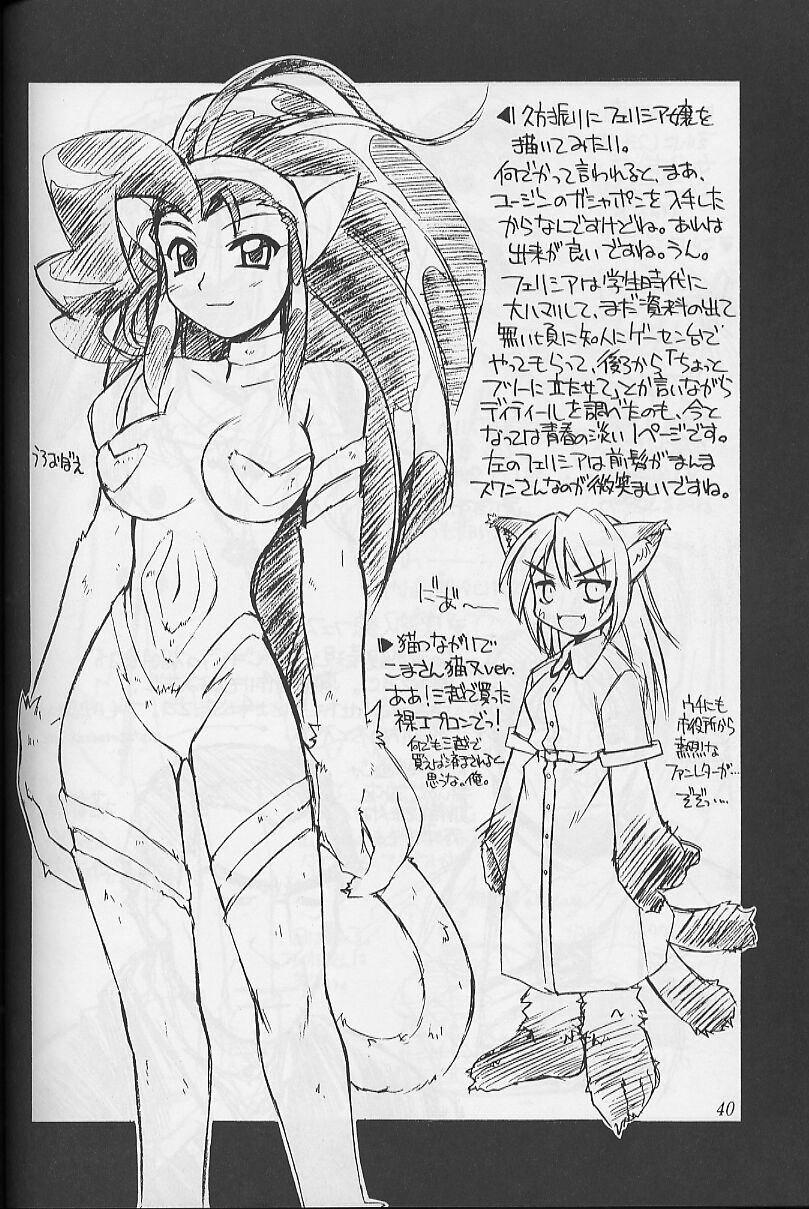 ◀久方振りにフェリシア嬢を
描いてみたり。
何でかって言われると、まあ、
ユージンのガシャポンを入手した
からなんですけどね。あれは
出来が良いですね。うん。
フェリシアは学生時代に
大ハマりして、まだ資料の出て
無い頃に知人にゲーセン台で
やってもらって、後ろから「ちょっと
ブリーに立たせて」とか言いながら
ディティールを調べたのも、今と
なっては青春の淡い1ページです。
左のフェリシアは前髪がまんま
スワンさんなのが微笑ましいですね。
うろおぼえ
にぁ～
▶猫つながりで
こまさん猫又ver.
ああ!三越で買った
裸エプコンでっ!
何でも三越で
買えば済まされると
思うな。俺。
ウチにも
市役所から
熱烈な
ファンレターが…
ぞぞっ…
40